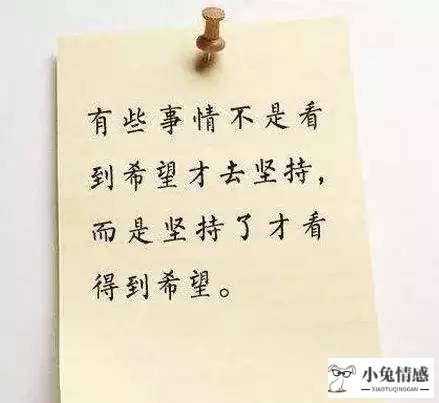 有些事情不是看
到希望才去坚持，
而是坚持了才看
得到希望。
小兔情感
XIAOTUQINGGAN